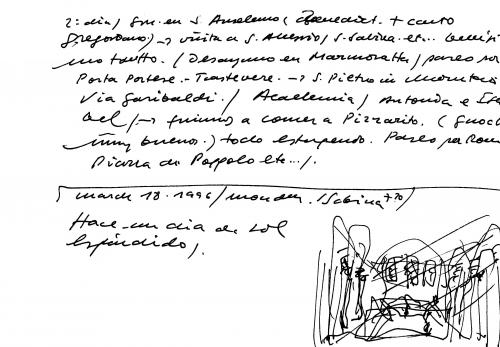 2: dia / en S. Anselmo ( Benedict. + canto
gregoriano) → visita a S. Alessio / S. Sabina etc... bellisi
mo tutto. / Desayuno en Marmoratta / paseo por
Porta Portese - Trastevere. → S. Pietro in Montorio
Via Garibaldi. / Academia / Antonda e
bel / → fuimos a comer a Pizzarito. ( Gnocc
muy buenos.) todo estupendo. Paseo por Roma
Piazza di Poppolo etc.../.
march 18. 1996 / monday. / Sabina
Hace un dia de sol
espléndido /.